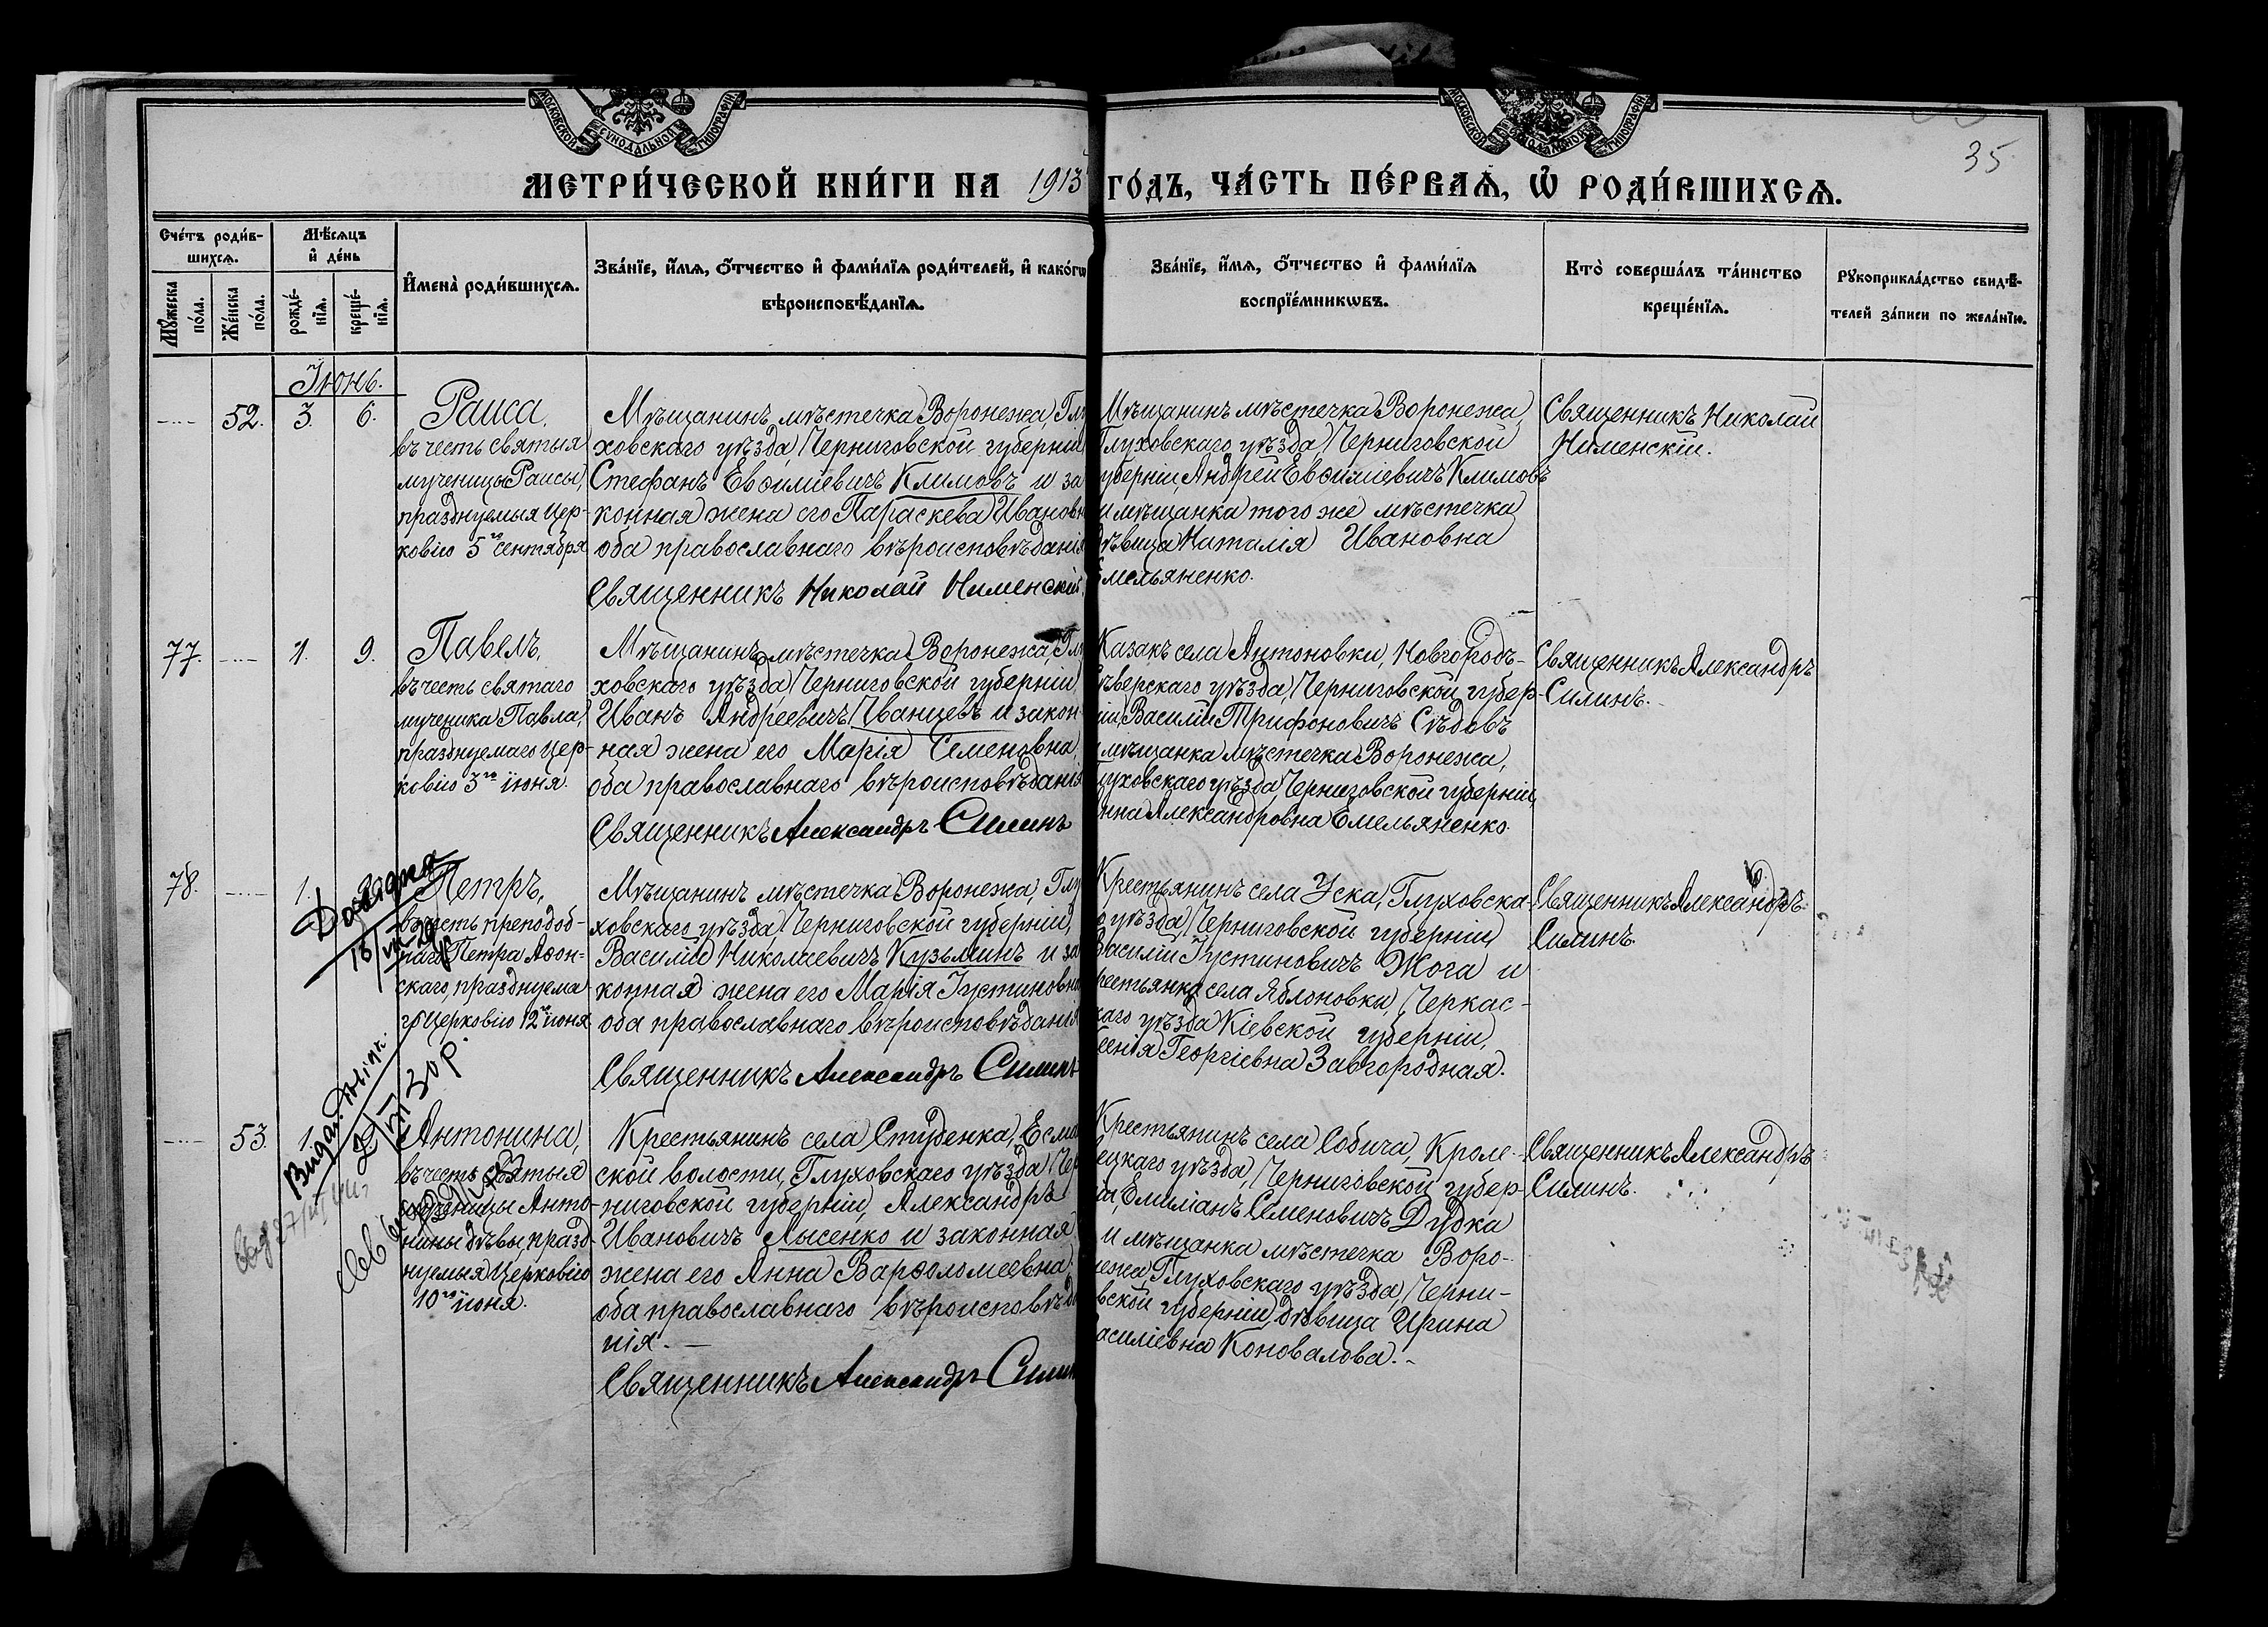 МОСКОВСКОЙ СѴНОДАЛЬНОЙ ТИПОГРАФІИ
МОСКОВСКОЙ СѴНОДАЛЬНОЙ ТИПОГРАФІИ
35
МЕТРИ́ЧЕСКОЙ КНИ́ГИ НА 1913 ГО́ДЪ, ЧА́СТЬ ПЕ́РВАѦ, Ѡ҆ РОДИ́ВШИХСѦ.
Сче́тъ роди́в-
шихсѧ.
Мѣ́сѧцъ
и҆ де́нь
Мꙋ́жеска по́ла.
Же́нска по́ла.
рожде́-
нїѧ.
креще́-
нїѧ.
И҆мена̀ роди́вшихсѧ.
Зва́нїе, и҆́мѧ, ѻ҆́тчество и҆ фами́лїѧ роди́телей, и҆ како́гѡ
вѣроисповѣ́данїѧ.
Зва́нїе, и҆́мѧ, ѻ҆́тчество и҆ фами́лїѧ
воспрїе́мникѡвъ.
Кто̀ соверша́лъ та́инство
креще́нїѧ.
Рꙋкоприкла́дство свидѣ́-
телей за́писи по жела́нїю.
Іюнь.
52. 3. 6.
Раиса,
въ честь святыя
мученицы Раисы,
празднуемыя Цер-
ковію 5го сентября
Мѣщанинъ мѣстечка Воронежа, Глу
ховскаго уѣзда, Черниговской губерніи
Стефанъ Евѳиміевичъ Климовъ и за
конная жена его Параскева Ивановн
оба православнаго вѣроисповѣданія
Священникъ Николай Нименскій
Мѣщанинъ мѣстечка Воронежа,
Глуховскаго уѣзда, Черниговской
губерніи, Андрей Евѳиміевичъ Климовъ
и мѣщанка того же мѣстечка
дѣвица Наталія Ивановна
Емельяненко.
Священникъ Николай
Нименскій.
77. 1. 9.
Павелъ,
въ честь святаго
мученика Павла,
празднуемаго Цер-
ковію 3го іюня.
Мѣщанинъ мѣстечка Воронежа, Глу
ховскаго уѣзда, Черниговской губерніи
Иванъ Андреевичъ Иванцевъ и закон-
ная жена его Марія Семеновна,
оба православнаго вѣроисповѣданія
Священникъ Александръ Силинъ
Казакъ села Антоновки, Новгородъ-
сѣверскаго уѣзда, Черниговской губер-
ніи, Василій Трифоновичъ Сѣдовъ
и мѣщанка мѣстечка Воронежа,
луховскаго уѣзда Черниговской губерніи,
нна Александровна Емельяненко.
Священникъ Александръ
Силинъ.
78. 1. 6.
Петръ,
въ честь преподоб-
наго Петра Аѳон-
скаго, празднуема
го Церковію 12го іюня
Довідка
Мѣщанинъ мѣстечка Воронежа, Глу
ховскаго уѣзда, Черниговской губерніи,
Василій Николаевичъ Кузьминъ и за
конная жена его Марія Іустиновна
оба православнаго вѣроисповѣданія
Священникъ Александръ Силинъ
Крестьянинъ села Уска, Глуховска-
о уѣзда, Черниговской губерніи,
Василій Іустиновичъ Жога и
рестьянка села Яблоновки, Черкас-
каго уѣзда Кіевской губерніи,
сенія Георгіевна Завгородная.
Священникъ Александръ
Силинъ.
53. 1.
Антонина,
въ честь святыя
мученицы Анто-
нины дѣвы, празд-
нуемыя Церковію
10го іюня.
Крестьянинъ села Студенка, Есман
ской волости, Глуховскаго уѣзда, Чер
ниговской губерніи, Александръ
Ивановичъ Лысенко и законная
жена его Анна Варѳоломеевна,
оба православнаго вѣроисповѣда
нія.
Священникъ Александръ Силин
Крестьянинъ села Собича, Кроле-
вецкаго уѣзда, Черниговской губер-
ніи, Емиліанъ Семеновичъ Дудка
и мѣщанка мѣстечка Воро-
нежа, Глуховскаго уѣзда, Черни-
вской губерніи, дѣвица Ирина
асиліевна Коновалова.
Священникъ Александръ
Силинъ.